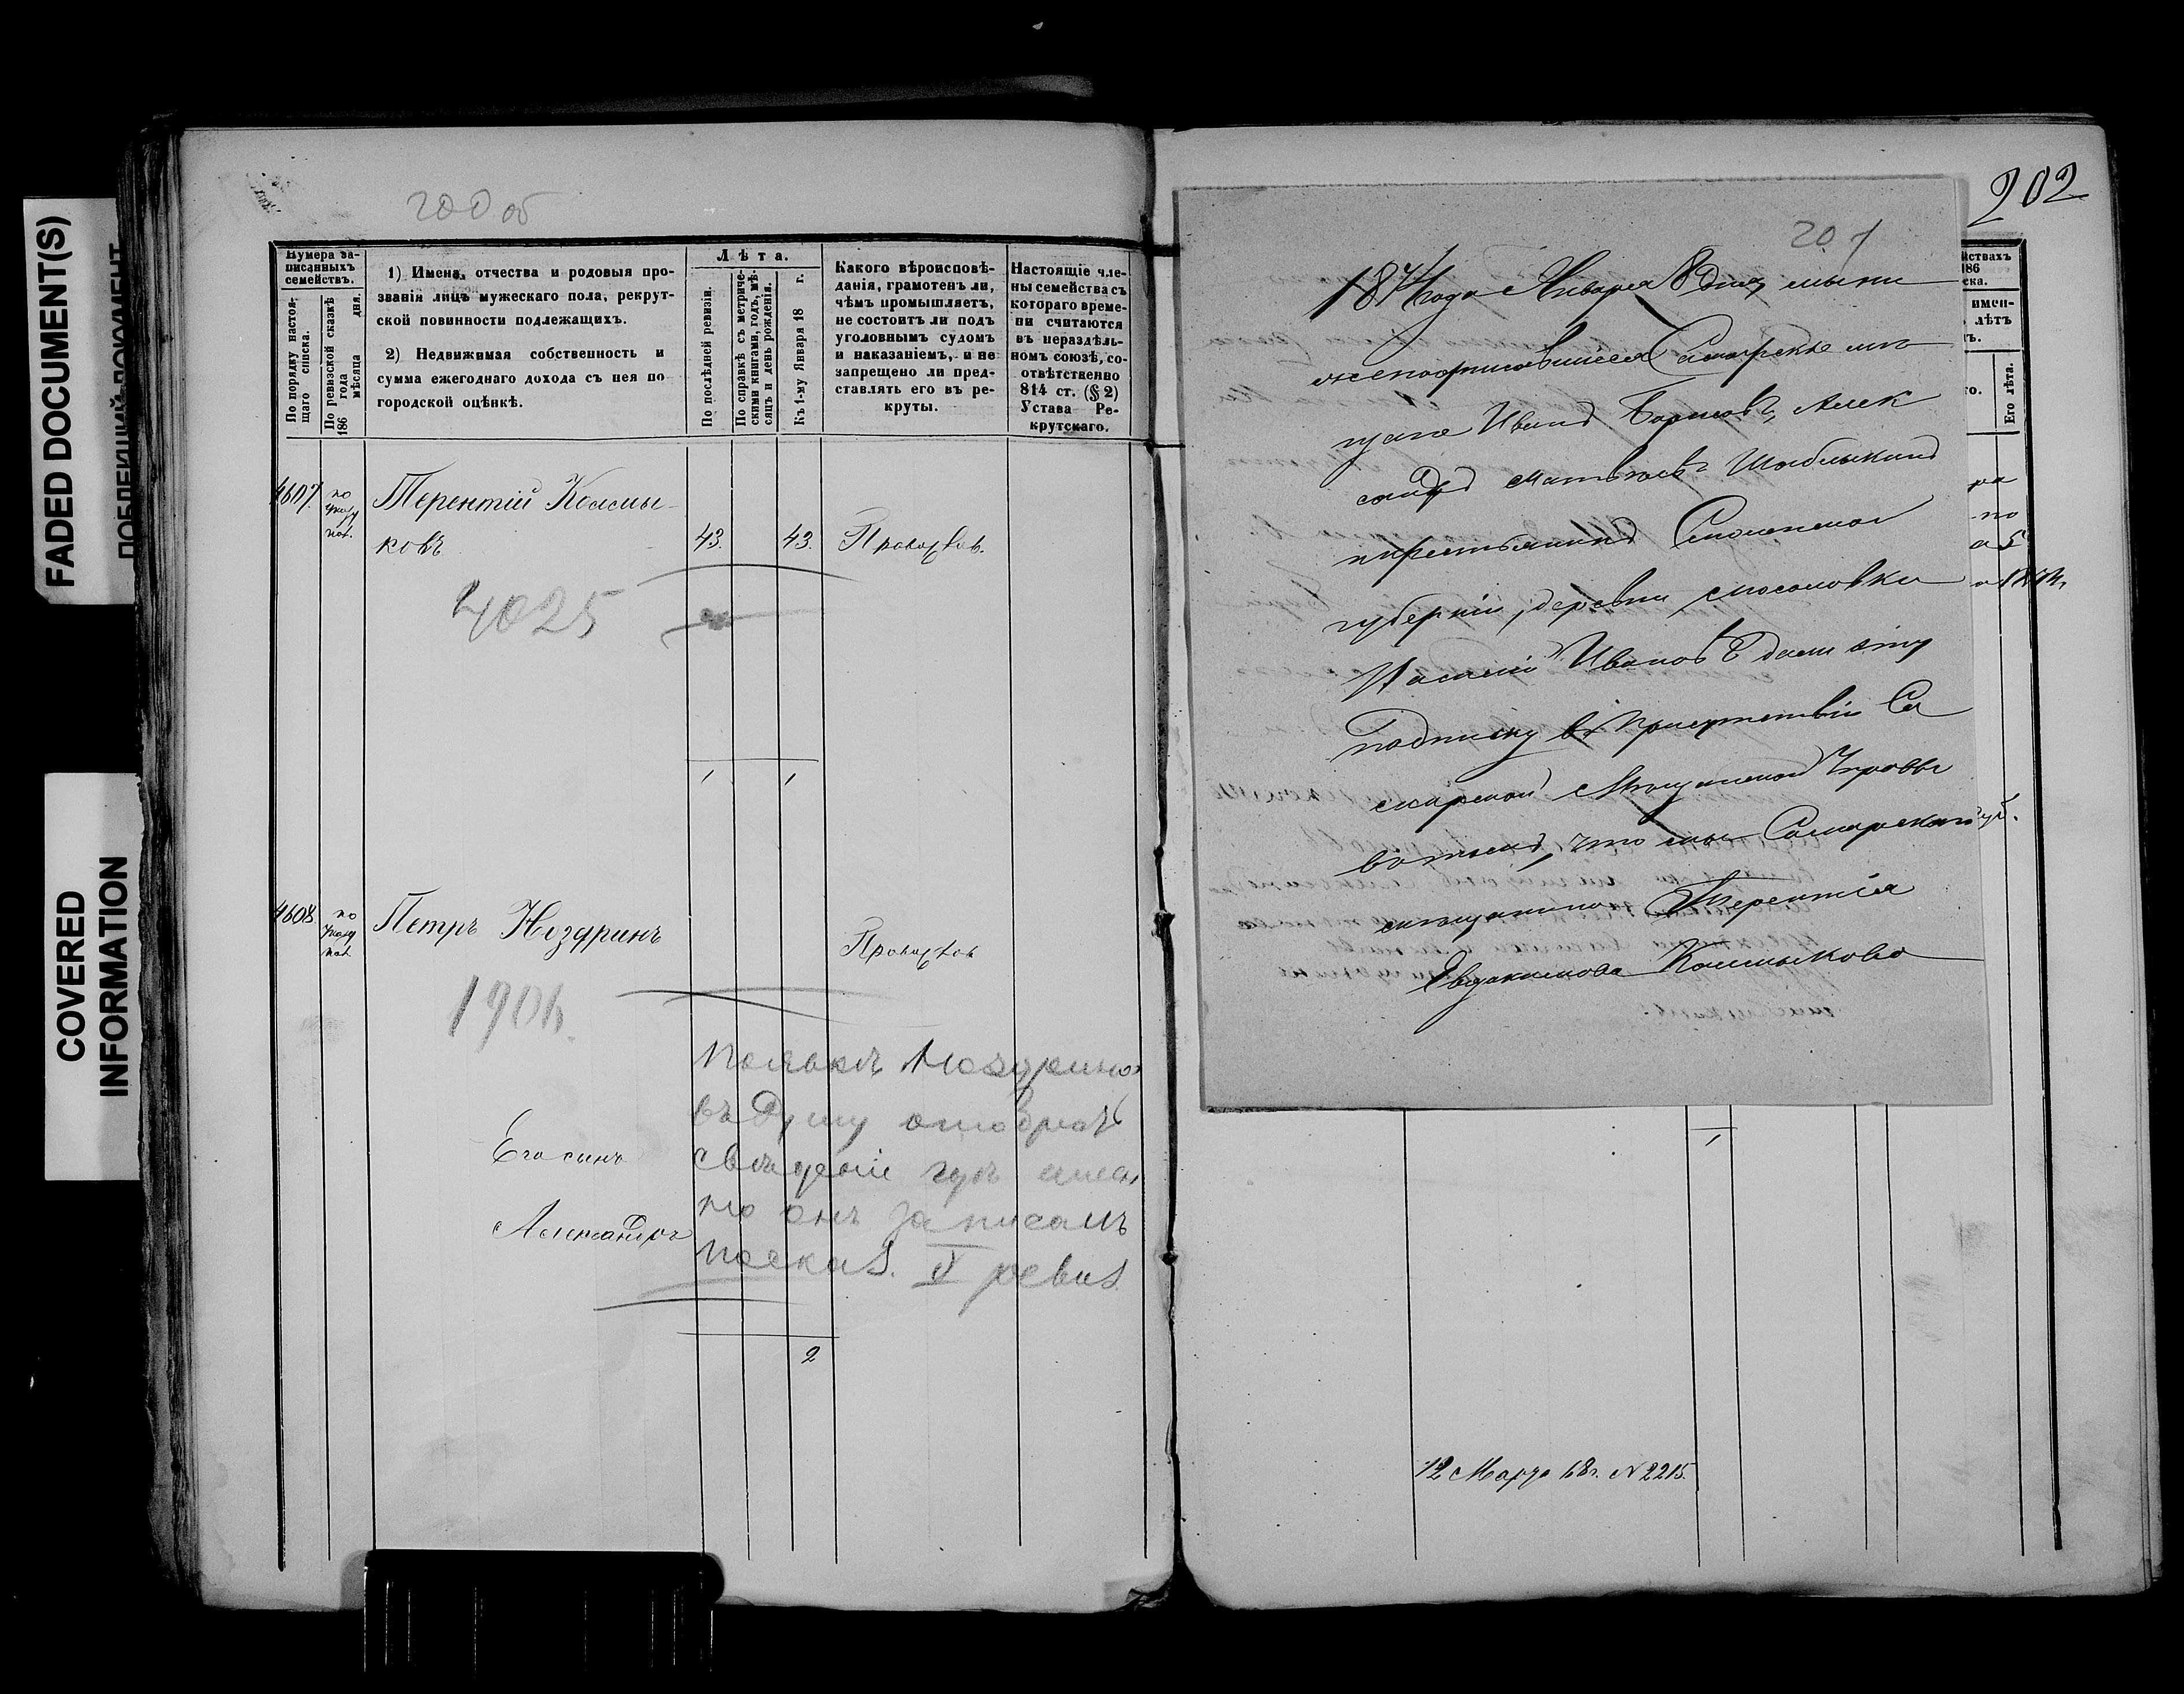 FADED DOCUMENT(S)
COVERED
INFORMATION
200 об
Нумера за-
писанныхъ
семействъ.
По порядку настоя-
щаго списка.
По ревизской сказкѣ
186 года
мѣсяца дня.
1) Имена, отчества и родовыя про-
званія лицъ мужескаго пола, рекрут-
ской повинности подлежащихъ.
2) Недвижимая собственность и
сумма ежегоднаго дохода съ нея по
городской оцѣнкѣ.
Лѣта.
По послѣдней ревизіи.
По справкѣ съ метриче-
скими книгами, годъ, мѣ-
сяцъ и день рожденія.
Къ 1-му Января 18 г.
Какого вѣроисповѣ-
данія, грамотенъ ли,
чѣмъ промышляетъ,
не состоитъ ли подъ
уголовнымъ судомъ
и наказаніемъ, и не
запрещено ли пред-
ставлять его въ ре-
круты.
Настоящіе чле-
ны семейства съ
котораго време-
ни считаются
въ нераздѣль-
номъ союзѣ, со-
отвѣтственно
814 ст. (§ 2)
Устава Ре-
крутскаго.
4607. по
указу
Терентій Колмы-
ковъ 43. 43.
4025
1 1
4608 по
указу
Петръ Ноздринъ
1904
Его сынъ
Александръ
въ душу
свѣденіе гдѣ имен
но онъ записанъ
по сказ. ревиз
2
202
201
1874 года Января 8 дня мы ни
жеподписавшіеся Самарскіе мѣ
щане Иванъ Борисовъ, Алек
сандръ Матвѣевъ Шаблыкинъ
крестьянинъ Смоленской
губерніи, деревни
Иванов дали эту
Подписку въ присутствіи Са
марской Мѣщанской Управы
въ томъ, что мы Самарскаго
мѣщанина Терентія
Евдокимова Колмыкова
йствахъ
186
ска.
имен-
лѣтъ
Его лѣта.
1
12 Марта 68 г. № 2215.